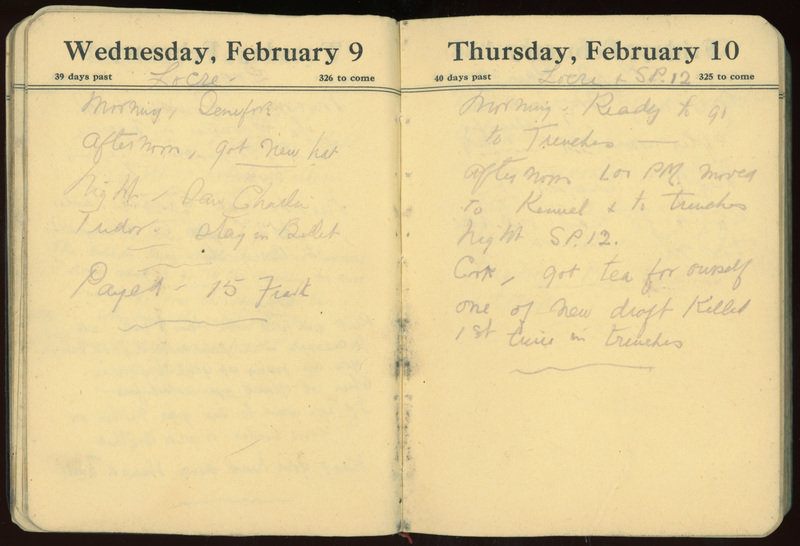 Wednesday, February 9
39 days past
Locre
326 to come
Morning,
Afternoon, got new hat
Night - Saw Charlie
Tudor. Stay in Billet
Payed - 15 Frank
Thursday, February 10
40 days past
Locre & SP.12
325 to come
Morning - Ready to go
to Trenches
Afternoon 1.00 PM. moved
to Kennel & to trenches
Night SP.12.
Cook, got tea for ourself
one of new draft Killed
1st time in trenches